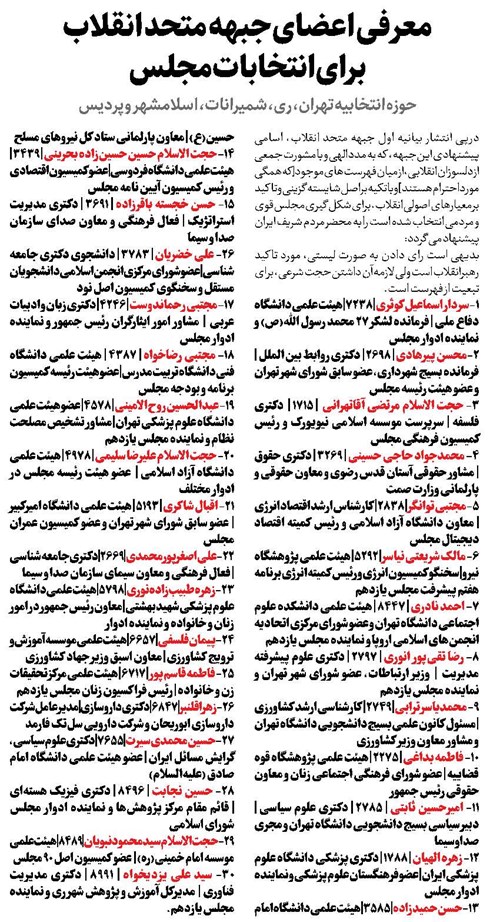 معرفی اعضای جبهه متحد انقلاب
برای انتخابات مجلس
حوزه انتخابیه تهران، ری، شمیرانات، اسلامشهر و پردیس
درپی انتشار بیانیه اول جبهه متحد انقلاب، اسامی
پیشنهادی این جبهه، که به مدد الهی و با مشورت جمعی
از دلسوزان انقلابی، از میان فهرست های موجود[که همگی
مورد احترام هستند] و با تکیه بر اصل شایسته گزینی و تاکید
بر معیارهای اصولی انقلاب، برای شکل گیری مجلس قوی
و مردمی انتخاب شده است را به محضر مردم شریف ایران
پیشنهاد می گردد:
بدیهی است رای دادن به صورت لیستی، مورد تاکید
رهبر انقلاب است ولی لازمه آن داشتن حجت شرعی، برای
تبعیت از فهرست است.
۱- سردار اسماعیل کوثری |۷۲۳۸| هیئت علمی دانشگاه
دفاع ملی | فرمانده لشکر ۲۷ محمد رسول الله(ص) و
نماینده ادوار مجلس
۲- محسن پیرهادی | ۲۶۹۸ | دکتری روابط بین الملل |
فرمانده بسیج شهرداری، عضو سابق شورای شهر تهران
و عضو هیئت رئیسه مجلس
۳- حجت الاسلام مرتضی آقاتهرانی | ۱۷۱۵ | دکتری
فلسفه | سرپرست موسسه اسلامی نیویورک و رئیس
کمیسیون فرهنگی مجلس
۴- محمدجواد حاجی حسینی | ۳۲۶۹ | دکتری حقوق
| مشاور حقوقی آستان قدس رضوی و معاون حقوقی و
پارلمانی وزارت صمت
۵- مجتبی توانگر |۲۸۳۸| کارشناس ارشد اقتصاد انرژی
| معاون دانشگاه آزاد اسلامی و رئیس کمیته اقتصاد
دیجیتال مجلس
۶- مالک شریعتی نیاسر |۵۲۹۲| هیئت علمی پژوهشگاه
نیرو|سخنگو کمیسیون انرژی و رئیس کمیته انرژی برنامه
هفتم پیشرفت مجلس یازدهم
۷- احمد نادری | ۸۴۴۷ | هیئت علمی دانشکده علوم
اجتماعی دانشگاه تهران و عضو شورای مرکزی اتحادیه
انجمن های اسلامی اروپا و نماینده مجلس یازدهم
۸- رضا تقی پور انوری | ۲۷۹۷ | دکتری علوم پیشرفته
مدیریت | وزیر ارتباطات، عضو شورای شهر تهران و
نماینده مجلس یازدهم
۹- محمدیاسر ترابی |۲۷۴۹| کارشناسی ارشد کشاورزی
| مسئول کانون علمی بسیج دانشجویی دانشگاه تهران
و مشاور معاون وزیر کشاورزی
۱۰- فاطمه بداغی | ۲۲۷۵ | هیئت علمی پژوهشگاه قوه
قضاییه | عضو شورای فرهنگی اجتماعی زنان و معاون
حقوقی رئیس جمهور
۱۱- امیرحسین ثابتی | ۲۷۸۵ | دکتری علوم سیاسی |
دبیر سیاسی بسیج دانشجویی دانشگاه تهران و مجری
صدا و سیما
۱۲- زهره الهیان | ۱۷۸۸ | دکتری پزشکی دانشگاه علوم
پزشکی ایران|عضو فرهنگستان علوم پزشکی و نماینده
ادوار مجلس
۱۳- حسن حمیدزاده |۳۵۸۵| هیئت علمی دانشگاه امام
حسین(ع) | معاون پارلمانی ستاد کل نیروهای مسلح
۱۴- حجت الاسلام حسین حسین زاده بحرینی |۳۴۳۹|
هیئت علمی دانشگاه فردوسی|عضو کمیسیون اقتصادی
و رئیس کمیسیون آیین نامه مجلس
۱۵- حسن خجسته باقرزاده | ۳۶۹۱ | دکتری مدیریت
استراتژیک | فعال فرهنگی و معاون صدای سازمان
صدا و سیما
۲۶- علی خضریان | ۳۷۸۳ | دانشجوی دکتری جامعه
شناسی|عضو شورای مرکزی انجمن اسلامی دانشجویان
مستقل و سخنگوی کمیسیون اصل نود
۱۷- مجتبی رحماندوست |۴۲۴۶| دکتری زبان و ادبیات
عربی | مشاور امور ایثارگران رئیس جمهور و نماینده
ادوار مجلس
۱۸- مجتبی رضاخواه | ۴۳۸۷ | هیئت علمی دانشگاه
فنی دانشگاه تربیت مدرس|عضو هیئت رئیسه کمیسیون
برنامه و بودجه مجلس
۱۹- عبدالحسین روح الامینی |۴۵۷۸| عضو هیئت علمی
دانشگاه علوم پزشکی تهران | مشاور تشخیص مصلحت
نظام و نماینده مجلس یازدهم
۲۰- حجت الاسلام علیرضا سلیمی |۴۹۷۸| هیئت علمی
دانشگاه آزاد اسلامی | عضو هیئت رئیسه مجلس در
ادوار مختلف
۲۱- اقبال شاکری |۵۱۹۳| هیئت علمی دانشگاه امیرکبیر
| عضو سابق شورای شهر تهران و عضو کمیسیون عمران
مجلس
۲۲- علی اصغر پورمحمدی |۲۶۶۹| دکتری جامعه شناسی
| فعال فرهنگی و معاون سیمای سازمان صدا و سیما
۲۳- زهره طبیب زاده نوری |۵۷۹۸| هیئت علمی دانشگاه
علوم پزشکی شهید بهشتی | معاون رئیس جمهور در امور
زنان و خانواده و نماینده ادوار
۲۴- پیمان فلسفی |۶۶۵۷| هیئت علمی موسسه آموزش و
ترویج کشاورزی | معاون اسبق وزیر جهاد کشاورزی
۲۵- فاطمه قاسم پور |۶۷۱۷| هیئت علمی مرکز تحقیقات
زن و خانواده | رئیس فراکسیون زنان مجلس یازدهم
۲۶- زهرا قلنبر |۶۸۴۷| دکتری داروسازی|مدیرعامل شرکت
داروسازی ابوریحان و شرکت دارویی سل تک فارمد
۲۷- حسین محمدی سیرت |۷۶۵۵| دکتری علوم سیاسی،
گرایش مسائل ایران | عضو هیئت علمی دانشگاه امام
صادق (علیه السلام)
۲۸- حسین نجابت | ۸۴۹۶ | دکتری فیزیک هسته ای
| قائم مقام مرکز پژوهش ها و نماینده ادوار مجلس
شورای اسلامی
۲۹- حجت الاسلام سید محمود نبویان |۸۴۸۹| هیئت علمی
موسسه امام خمینی (ره) | عضو کمیسیون اصل ۹۰ مجلس
۳۰- سید علی یزدیخواه | ۸۹۹۱ | دکتری مدیریت
فناوری | مدیرکل آموزش و پژوهش شهرری و نماینده
مجلس یازدهم.